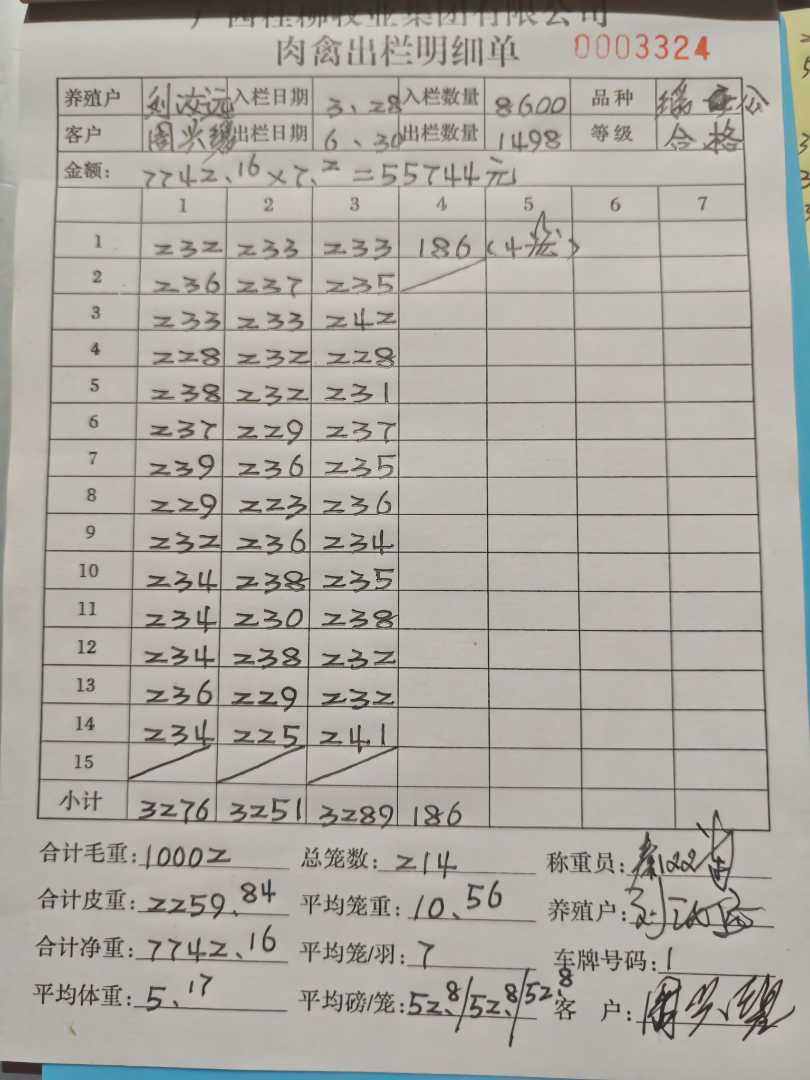 广西桂柳牧业集团有限公司
肉禽出栏明细单 0003324
养殖户 入栏日期 3、28 入栏数量 8600 品种
客户 出栏日期 6、30 出栏数量 1498 等级 合格
金额: 7742.16×7.2=55744元
1 2 3 4 5 6 7
1 232 233 233 186 (4笼)
2 236 237 235
3 233 233 242
4 228 232 228
5 238 232 231
6 237 229 237
7 239 236 235
8 229 223 236
9 232 236 234
10 234 238 235
11 234 230 238
12 234 238 232
13 236 229 232
14 234 225 241
15
小计 3276 3251 3289 186
合计毛重: 10002 总笼数: 214 称重员:
合计皮重: 2259.84 平均笼重: 10、56 养殖户:
合计净重: 7742、16 平均笼/羽: 7 车牌号码: 1
平均体重: 5、17 平均磅/笼: 52.8/52.8/52.8 客 户: